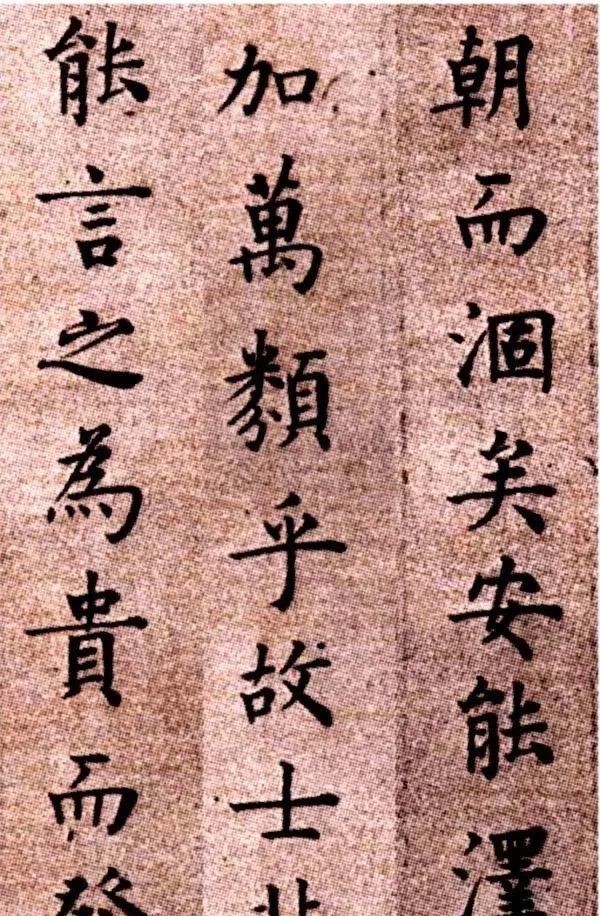 朝而涸矣安能澤
加萬類乎故士
能言之為貴而